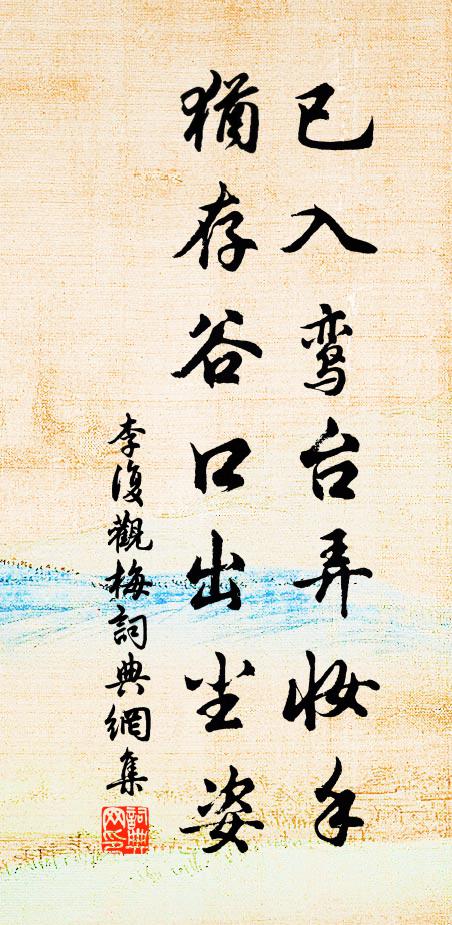 已入鸾台弄妆手
猶存谷口出尘姿
李復觀梅詞典網集
詞典网印